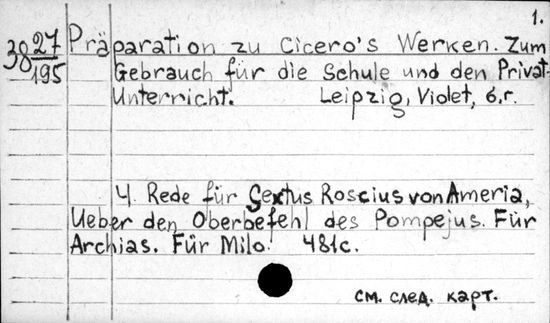 1.
38 27/195
Präparation zu Cicero's Werken. Zum
Gebrauch für die Schule und den Privat-
Unterricht. Leipzig, Violet, б.г.
4. Rede für Sextus Roscius von Ameria,
Ueber den Oberbefehl des Pompejus. Für
Archias. Für Milo. 481c.
см. след. карт.